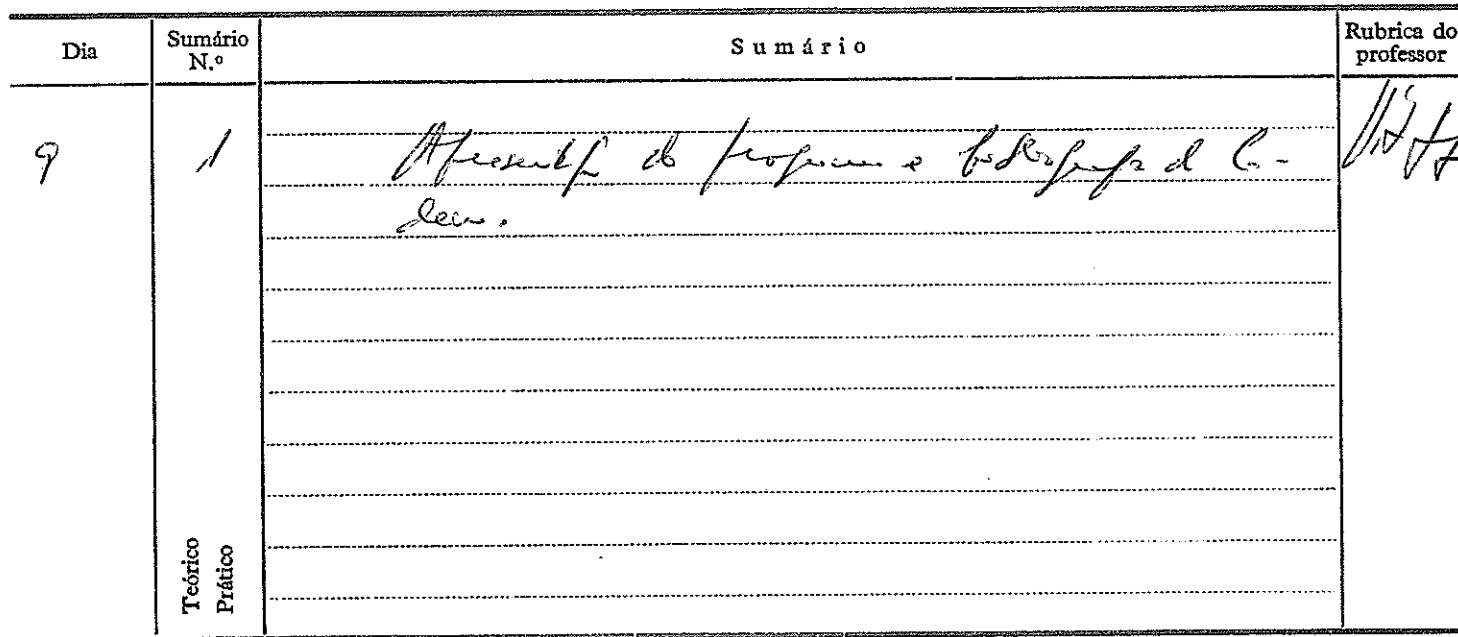 Dia
Sumário N.º
Sumário
Rubrica do professor
9
1
Apresentação do programa e bibliografia da ca-
deira.
Teórico
Prático